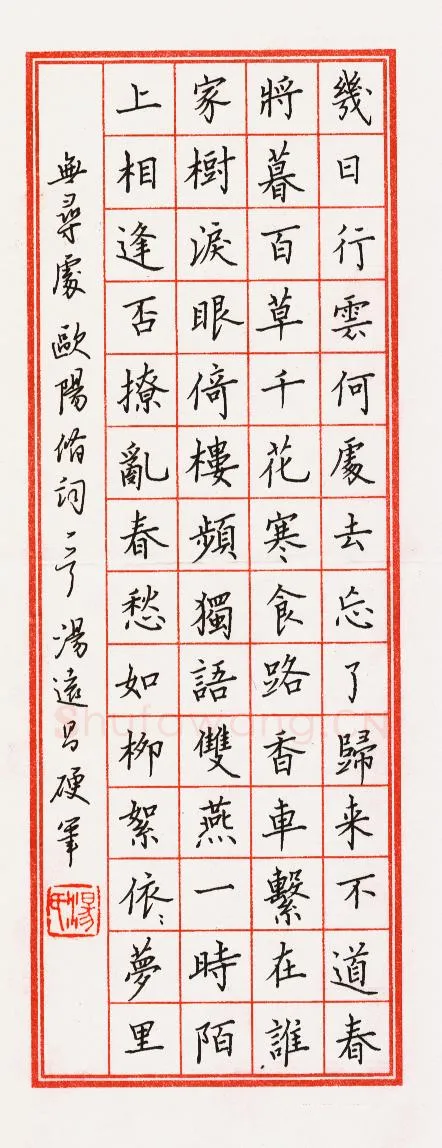 幾日行雲何處去忘了歸来不道春
將暮百草千花寒食路香車繫在誰
家樹淚眼倚樓頻獨語雙燕一時陌
上相逢否撩亂春愁如柳絮依〻夢里
無尋處 歐陽脩詞一首 湯遠昌硬筆
Shufawang.CN